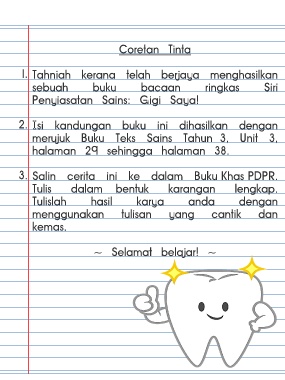 Coretan Tinta
1. Tahniah kerana telah berjaya menghasilkan
sebuah buku bacaan ringkas Siri
Penyiasatan Sains: Gigi Saya!
2. Isi kandungan buku ini dihasilkan dengan
merujuk Buku Teks Sains Tahun 3, Unit 3,
halaman 29 sehingga halaman 38.
3. Salin cerita ini ke dalam Buku Khas PDPR.
Tulis dalam bentuk karangan lengkap.
Tulislah hasil karya anda dengan
menggunakan tulisan yang cantik dan
kemas.
~ Selamat belajar! ~